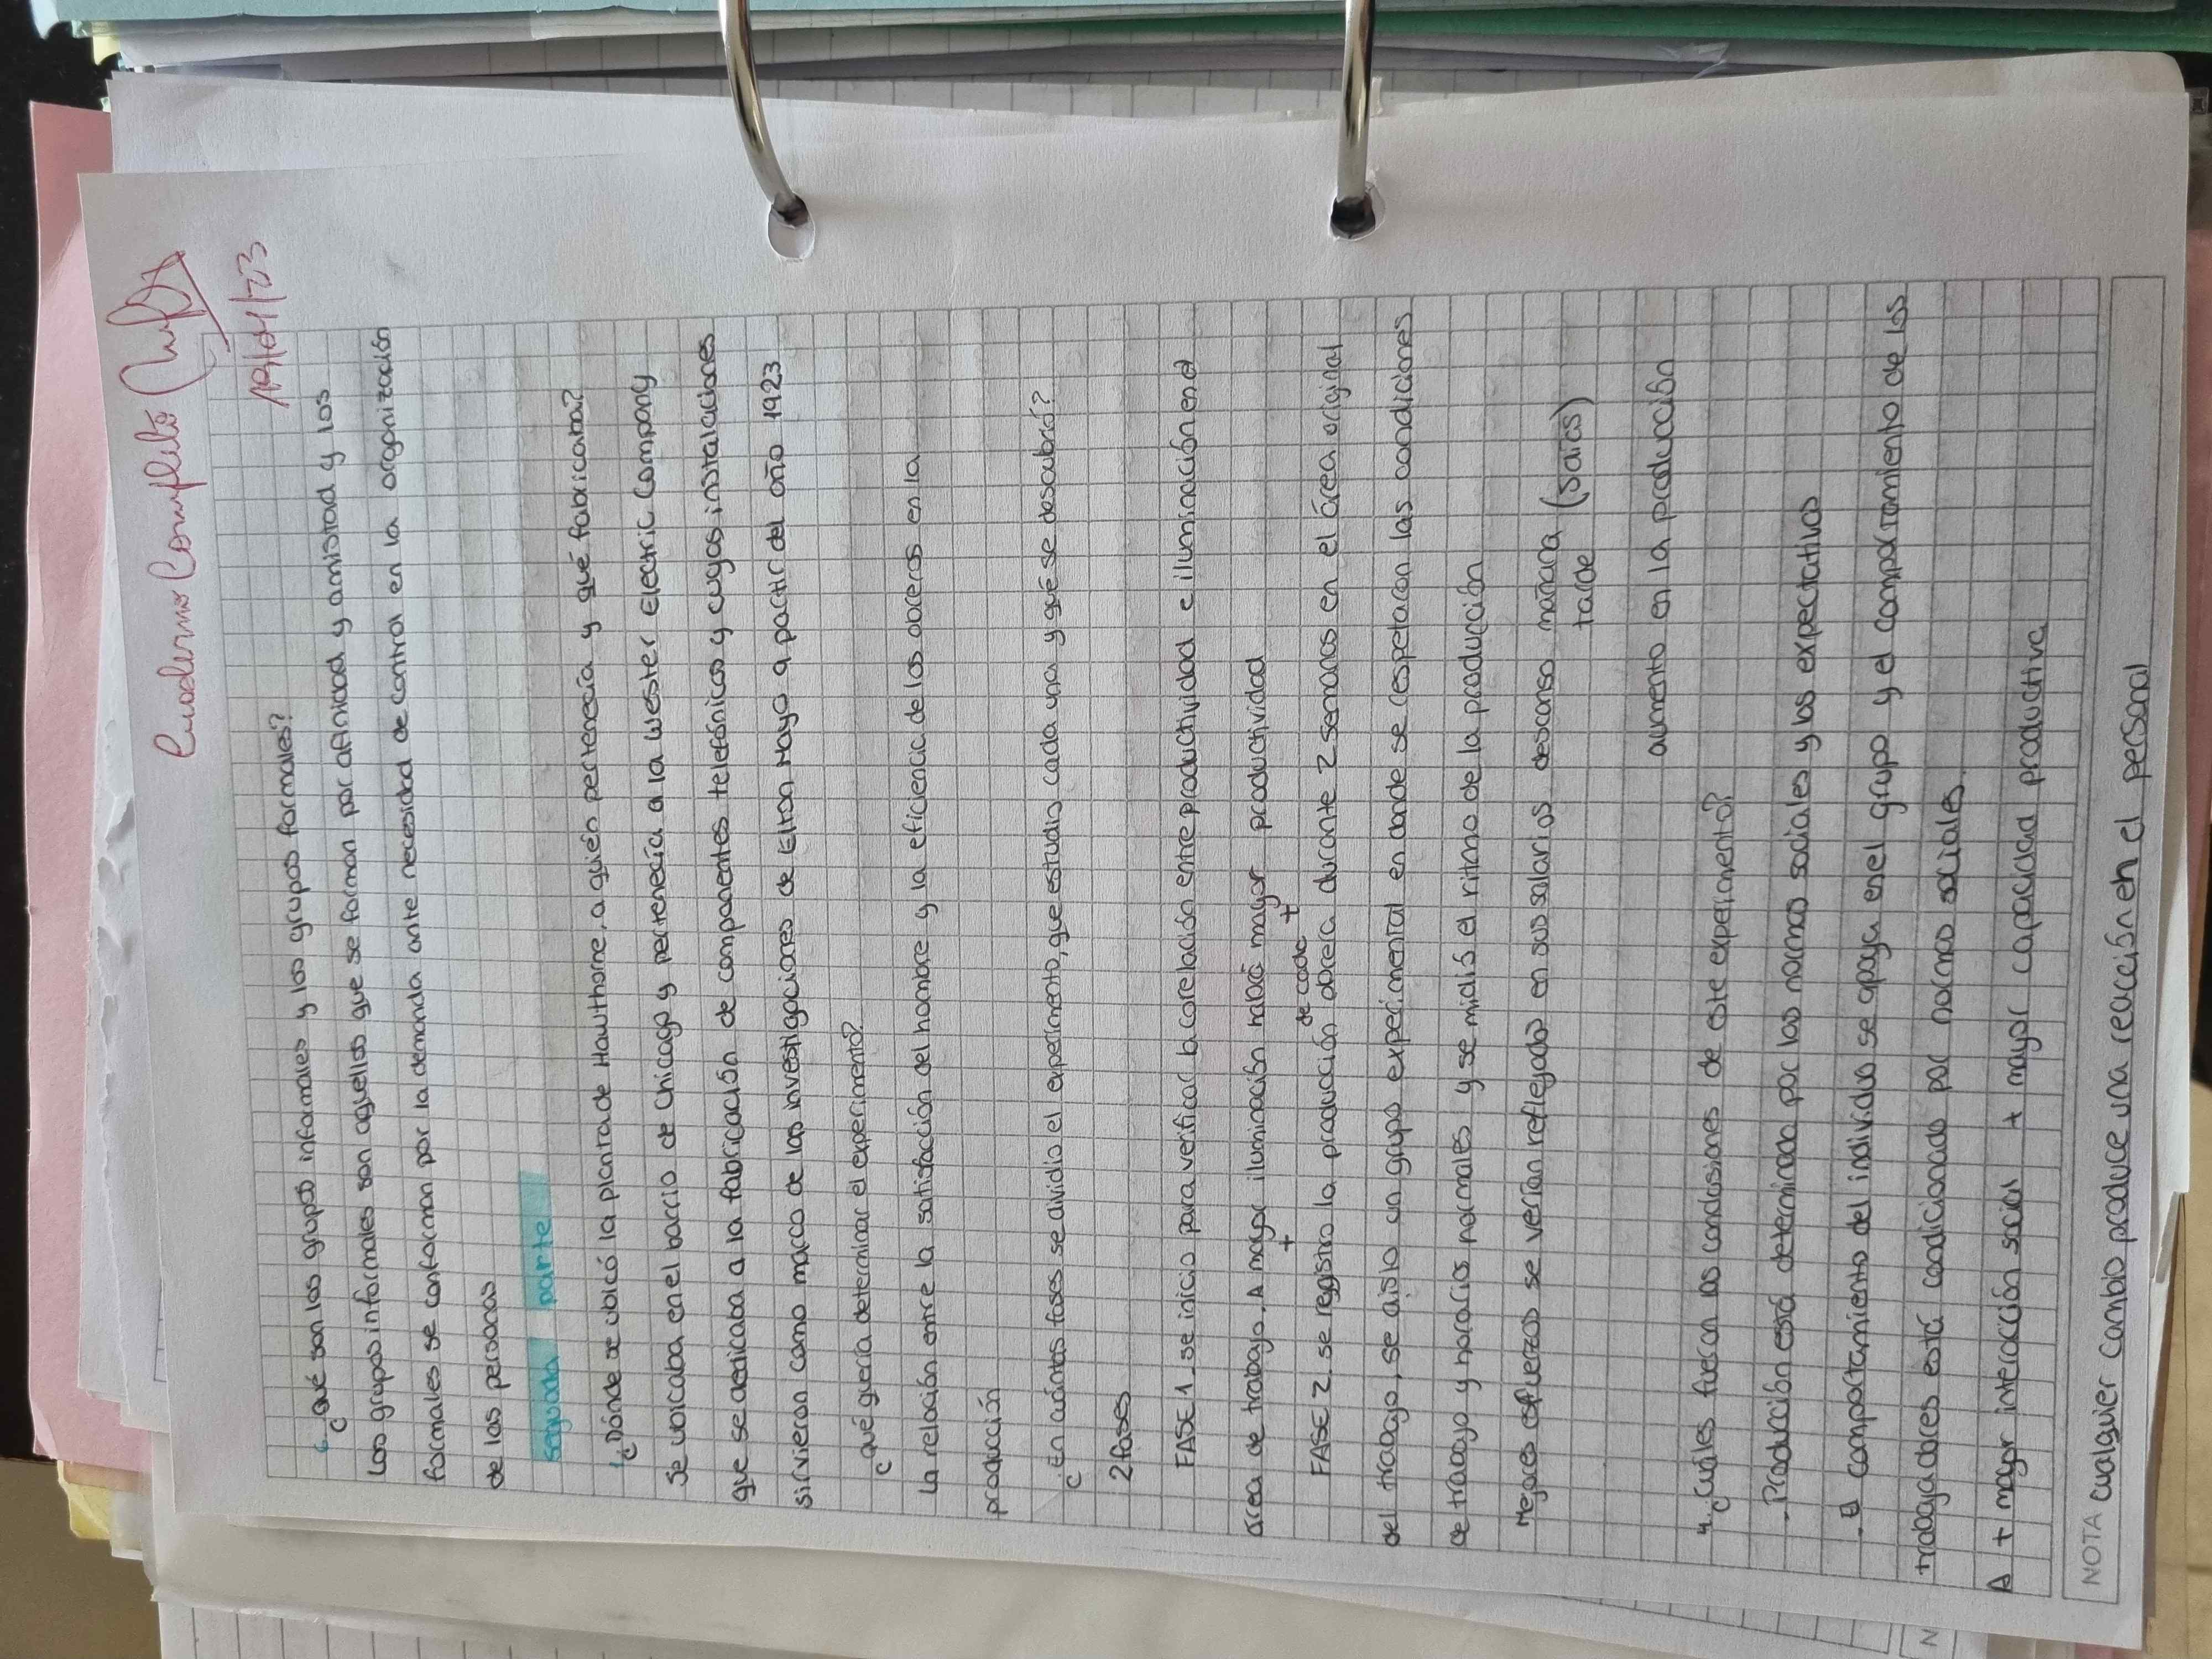 Cuaderno Completo
19/04/23
6. ¿Qué son los grupos informales y los grupos formales?
Los grupos informales son aquellos que se forman por afinidad y amistad y los
formales se conforman por la demanda ante necesidad de control en la organización
de las personas
segunda parte
1. ¿Dónde se ubicó la planta de Hawthorne, a quién pertenecía y qué fabricaba?
Se ubicaba en el barrio de Chicago y pertenecía a la Wester Electric Company
que se dedicaba a la fabricación de componentes telefónicos y cuyas instalaciones
sirvieron como marco de las investigaciones de Elton Mayo a partir del año 1923
¿Qué quería determinar el experimento?
La relación entre la satisfacción del hombre y la eficiencia de los obreros en la
producción
¿En cuántas fases se dividio el experimento, que estudio cada una y qué se descubrió?
2 fases
FASE 1_ se inicio para verificar la corelación entre productividad e iluminación en el
área de trabajo. A mayor iluminación habrá mayor productividad
+ de cada +
FASE 2_ se registro la producción obrera durante 2 semanas en el área original
del trabajo, se aisló un grupo experimental en donde se respetaron las condiciones
de trabajo y horarios normales y se midió el ritmo de la producción
Mejores esfuerzos se verían reflejados en sus salarios descanso mañana (5 a 10s)
tarde
aumento en la producción
4. ¿Cuáles fueron las conclusiones de este experimento?
. Producción está determinada por las normas sociales y las expectativas
. El comportamiento del individuo se apoya en el grupo y el comportamiento de los
trabajadores está condicionado por normas sociales.
A + mayor interacción social + mayor capacidad productiva
NOTA cualquier cambio produce una reacción en el personal